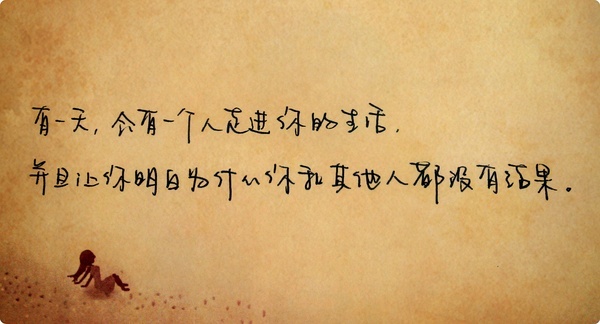 有一天,会有一个人走进你的生活,
并且让你明白为什么你和其他人都没有结果。